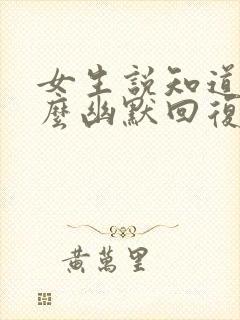 女生說知道
麼幽默回復
黃萬里